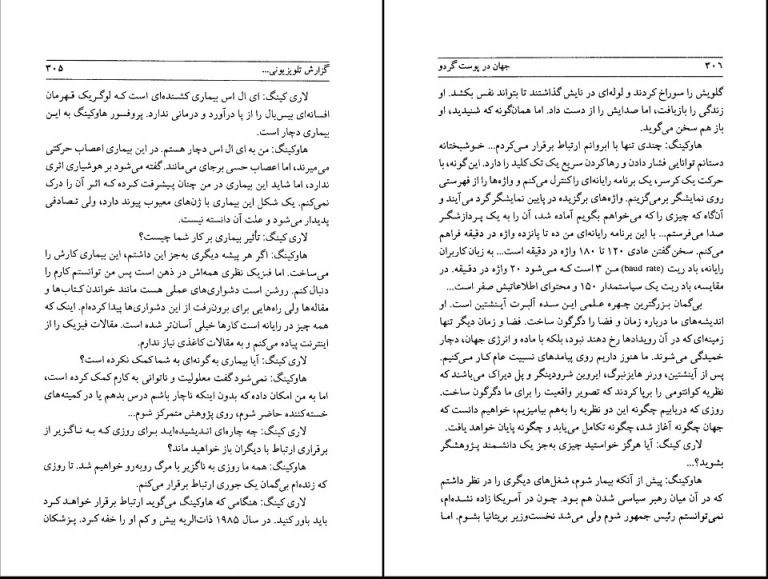 گزارش تلویزیونی... ۳۰۵
لاری کینگ: ای ال اس بیماری کشنده‌ای است که لوگریک قهرمان
افسانه‌ای بیس‌بال را از پا درآورد و درمانی ندارد. پروفسور هاوکینگ به این
بیماری دچار است.
هاوکینگ: من به ای ال اس دچار هستم. در این بیماری اعصاب حرکتی
می‌میرند، اما اعصاب حسی برجای می‌مانند. گفته می‌شود بر هوشیاری اثری
ندارد، اما شاید این بیماری در من چنان پیشرفت کرده که اثر آن را درک
نمی‌کنم. یک شکل این بیماری با ژن‌های معیوب پیوند دارد، ولی تصادفی
پدیدار می‌شود و علت آن دانسته نیست.
لاری کینگ: تأثیر بیماری بر کار شما چیست؟
هاوکینگ: اگر هر پیشه دیگری به‌جز این داشتم، این بیماری کارش را
می‌ساخت. اما فیزیک نظری همه‌اش در ذهن است پس من توانستم کارم را
دنبال کنم. روشن است دشواری‌های عملی هست مانند خواندن کتاب‌ها و
مقاله‌ها ولی راه‌هایی برای برون‌رفت از این دشواری‌ها پیدا کرده‌ام. اینک که
همه چیز در رایانه است کارها خیلی آسان‌تر شده است. مقالات فیزیک را از
اینترنت پیاده می‌کنم و به مقالات کاغذی نیاز ندارم.
لاری کینگ: آیا بیماری به گونه‌ای به شما کمک نکرده است؟
هاوکینگ: نمی‌شود گفت معلولیت و ناتوانی به کارم کمک کرده است،
اما به من امکان داده که بدون اینکه ناچار باشم درس بدهم یا در کمیته‌های
خسته‌کننده حاضر شوم، روی پژوهش متمرکز شوم...
لاری کینگ: جه چاره‌ای اندیشیده‌اید برای روزی که به ناگزیر از
برقراری ارتباط با دیگران باز خواهید ماند؟
هاوکینگ: همه ما روزی به ناگزیر با مرگ روبه‌رو خواهیم شد. تا روزی
که زنده‌ام بی‌گمان یک جوری ارتباط برقرار می‌کنم.
لاری کینگ: هنگامی که هاوکینگ می‌گوید ارتباط برقرار خواهد کرد
باید باور کنید. در سال ۱۹۸۵ ذات‌الریه بیش و کم او را خفه کرد. پزشکان
۳۰۶ جهان در پوست گردو
گلویش را سوراخ کردند و لوله‌ای در نایش گذاشتند تا بتواند نفس بکشد. او
زندگی را بازیافت، اما صدایش را از دست داد. اما همان‌گونه که شنیدید، او
باز هم سخن می‌گوید.
هاوکینگ: چندی تنها با ابروانم ارتباط برقرار می‌کردم... خوشبختانه
دستانم توانایی فشار دادن و رها کردن سریع یک تک کلید را دارد. این‌گونه، با
حرکت یک کرسر، یک برنامه رایانه‌ای را کنترل می‌کنم و واژه‌ها را از فهرستی
روی نمایشگر برمی‌گزینم. واژه‌های برگزیده در پایین نمایشگر گرد می‌آیند و
آن‌گاه که چیزی را که می‌خواهم بگویم آماده شد، آن را به یک پردازشگر
صدا می‌فرستم... با این برنامه رایانه‌ای من ده تا پانزده واژه در دقیقه فراهم
می‌کنم. سخن گفتن عادی ۱۲۰ تا ۱۸۰ واژه در دقیقه است... به زبان کاربران
رایانه، باد ریت (baud rate) من ۳ است که می‌شود ۲۰ واژه در دقیقه. در
مقایسه، باد ریت یک سیاستمدار ۱۵۰ و محتوای اطلاعاتیش صفر است...
بی‌گمان بزرگترین چهره علمی این سده آلبرت آینشتین است. او
اندیشه‌های ما درباره زمان و فضا را دگرگون ساخت. فضا و زمان دیگر تنها
زمینه‌ای که در آن رویدادها رخ دهند نبود، بلکه با ماده و انرژی جهان، دچار
خمیدگی می‌شوند. ما هنوز داریم روی پیامدهای نسبیت عام کار می‌کنیم.
پس از آینشتین، ورنر هایزنبرگ، ایروین شرودینگر و پل دیراک می‌باشند که
نظریه کوانتومی را برپا کردند که تصویر واقعیت را برای ما دگرگون ساخت.
روزی که دریابیم چگونه این دو نظریه را به‌هم بیامیزیم، خواهیم دانست که
جهان چگونه آغاز شد، چگونه تکامل می‌یابد و چگونه پایان خواهد یافت.
لاری کینگ: آیا هرگز خواستید چیزی به‌جز یک دانشمند پژوهشگر
بشوید؟...
هاوکینگ: پیش از آنکه بیمار شوم، شغل‌های دیگری را در نظر داشتم
که در آن میان رهبر سیاسی شدن هم بود. چون در آمریکا زاده نشده‌ام،
نمی‌توانستم رئیس جمهور شوم ولی می‌شد نخست‌وزیر بریتانیا بشوم. اما